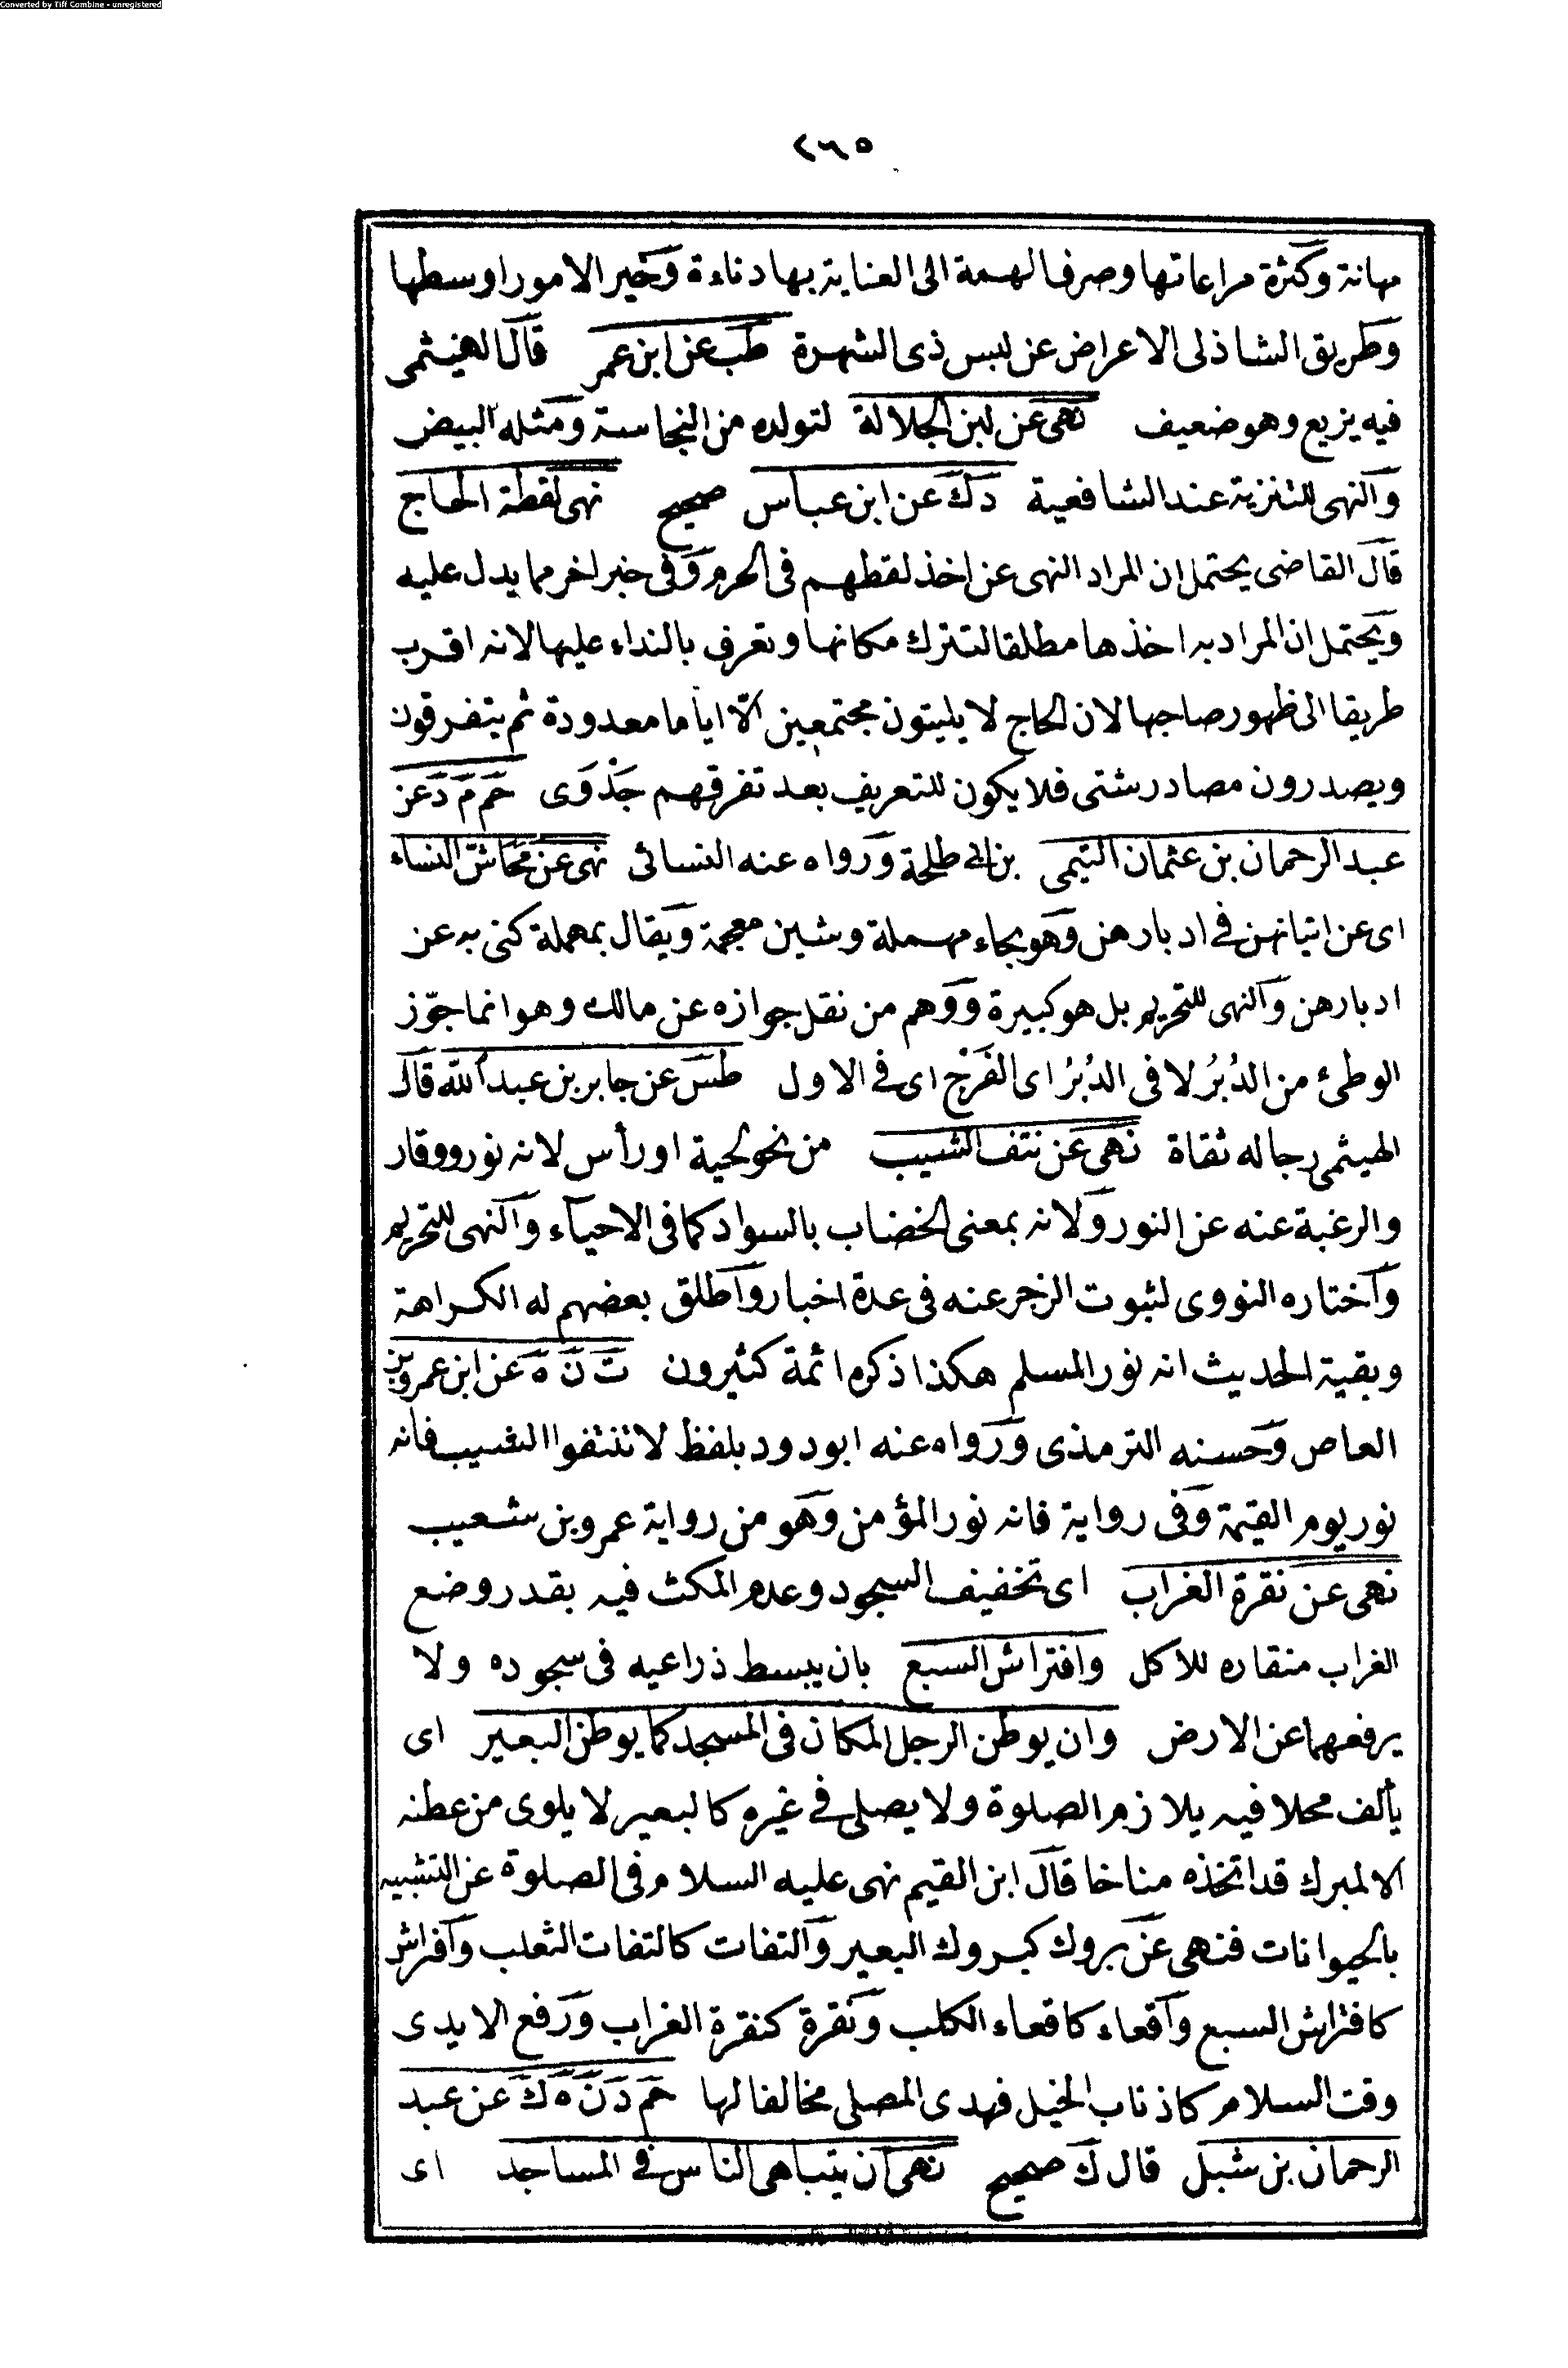 Converted by Tiff Combine - unregistered
٢٦٥
مهانة وكثرة مراعاتها وصرف الهمة الى العناية بها دناءة وخير الامور اوسطها
وطريق الشاذلى الاعراض عن لبس ذى الشهرة طب عن ابن عمر قال الهيثمى
فيه يزيع وهو ضعيف نهى عن لبن الجلالة لتولده من النجاسة ومثله البيض
والنهى للتنزيه عند الشافعية دك عن ابن عباس صحيح نهى لقطة الحاج
قال القاضى يحتمل ان المراد النهى عن اخذ لقطهم فى الحرم وفى خبر اخر مما يدل عليه
ويحتمل ان المراد به اخذها مطلقا لتترك مكانها وتعرف بالنداء عليها لانه اقرب
طريقا الى ظهور صاحبها لان الحاج لا يلبثون مجتمعين الّا اياما معدودة ثم يتفرقون
ويصدرون مصادر شتى فلا يكون للتعريف بعد تفرقهم جَدْوَى حم م د عن
عبد الرحمان بن عثمان التيمى بن ابى طلحة ورواه عنه النسائى نهى عن محاشّ النساء
اى عن اتيانهن فى ادبارهن وهو بحاء مهملة وشين معجمة ويقال بمهملة كنى به عن
ادبارهن والنهى للتحريم بل هو كبيرة ووهم من نقل جوازه عن مالك وهو انما جوّز
الوطئ من الدُبُر لا فى الدُبُر اى الفَرْج اى فى الاول طس عن جابر بن عبد الله قال
الهيثمى رجاله ثقاة نهى عن نتف الشيب من نحو لحية او رأس لانه نور ووقار
والرغبة عنه عن النور ولانه بمعنى الخضاب بالسواد كما فى الاحياء والنهى للتحريم
واختاره النووى لثبوت الزجر عنه فى عدة اخبار واطلق بعضهم له الكراهة
وبقية الحديث انه نور المسلم هكذا ذكره ائمة كثيرون ت ن ه عن ابن عمرو بن
العاص وحسنه الترمذى ورواه عنه ابودود بلفظ لا تنتفوا الشيب فانه
نور يوم القيمة وفى رواية فانه نور المؤمن وهو من رواية عمرو بن شعيب
نهى عن نقرة الغراب اى تخفيف السجود وعدم المكث فيه بقدر وضع
الغراب منقاره للاكل وافتراش السبع بان يبسط ذراعيه فى سجوده ولا
يرفعهما عن الارض وان يوطن الرجل المكان فى المسجد كما يوطن البعير اى
يألف محلا فيه يلازم الصلوة ولا يصلى فى غيره كالبعير لا يلوى من عطنه
الا لمبرك قد اتخذه مناخا قال ابن القيم نهى عليه السلام فى الصلوة عن التشبيه
بالحيوانات فنهى عن بروك كبروك البعير والتفات كالتفات الثعلب وافراش
كافتراش السبع واقعاء كاقعاء الكلب ونقرة كنقرة الغراب ورفع الايدى
وقت السلام كاذناب الخيل فهدى المصلى مخالفا لها حم د ن ه ك عن عبد
الرحمان بن شبل قال ك صحيح نهى ان يتباهى الناس فى المساجد اى